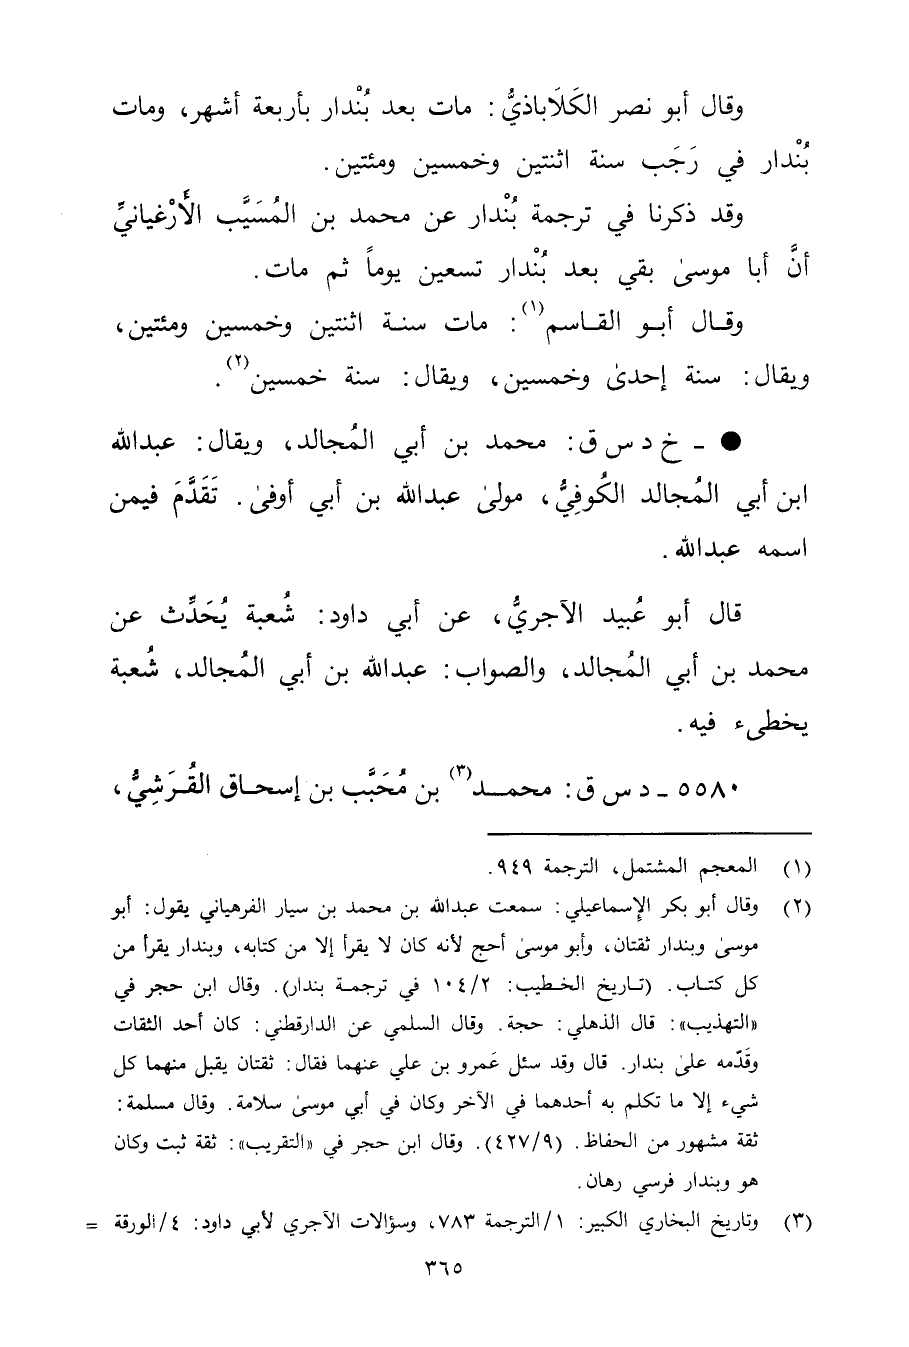 وقال أبو نصر الكَلَاباذيُّ: مات بعد بُنْدار بأربعة أشهر، ومات
بُنْدار في رَجَب سنة اثنتين وخمسين ومئتين.
وقد ذكرنا في ترجمة بُنْدار عن محمد بن المُسَيَّب الأَرْغيانيِّ
أنَّ أبا موسىٰ بقي بعد بُنْدار تسعين يوماً ثم مات.
وقال أبو القاسم(١): مات سنة اثنتين وخمسين ومئتين،
ويقال: سنة إحدىٰ وخمسين، ويقال: سنة خمسين(٢).
● ـ خ د س ق: محمد بن أبي المُجالد، ويقال: عبدالله
ابن أبي المُجالد الكُوفِيُّ، مولىٰ عبدالله بن أبي أوفىٰ. تَقَدَّمَ فيمن
اسمه عبدالله.
قال أبو عُبيد الآجريُّ، عن أبي داود: شُعبة يُحَدِّث عن
محمد بن أبي المُجالد، والصواب: عبدالله بن أبي المُجالد، شُعبة
يخطىء فيه.
٥٥٨٠ ـ د س ق: محمد(٣) بن مُحَبَّب بن إسحاق القُرَشِيُّ،
(١) المعجم المشتمل، الترجمة ٩٤٩.
(٢) وقال أبو بكر الإسماعيلي: سمعت عبدالله بن محمد بن سيار الفرهياني يقول: أبو
موسىٰ وبندار ثقتان، وأبو موسىٰ أحج لأنه كان لا يقرأ إلا من كتابه، وبندار يقرأ من
كل كتاب. (تاريخ الخطيب: ١٠٤/٢ في ترجمة بندار). وقال ابن حجر في
«التهذيب»: قال الذهلي: حجة. وقال السلمي عن الدارقطني: كان أحد الثقات
وقَدّمه علىٰ بندار. قال وقد سئل عَمرو بن علي عنهما فقال: ثقتان يقبل منهما كل
شيء إلا ما تكلم به أحدهما في الآخر وكان في أبي موسىٰ سلامة. وقال مسلمة:
ثقة مشهور من الحفاظ. (٤٢٧/٩). وقال ابن حجر في «التقريب»: ثقة ثبت وكان
هو وبندار فرسي رهان.
(٣) وتاريخ البخاري الكبير: ١/الترجمة ٧٨٣، وسؤالات الآجري لأبي داود: ٤/الورقة =
٣٦٥